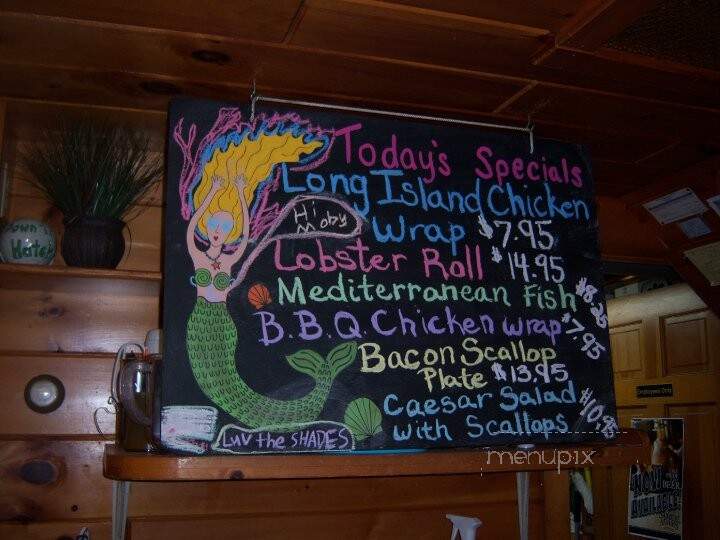 Today's Specials
Long Island Chicken
Wrap $7.95
Hi
Moby
Lobster Roll $14.95
Mediterranean Fish
B.B.Q. Chicken wrap $7.95
Bacon Scallop
Plate $13.95
Caesar Salad
with Scallops
Luv the SHADES
Hatch
menupix
NOW
AVAILABLE